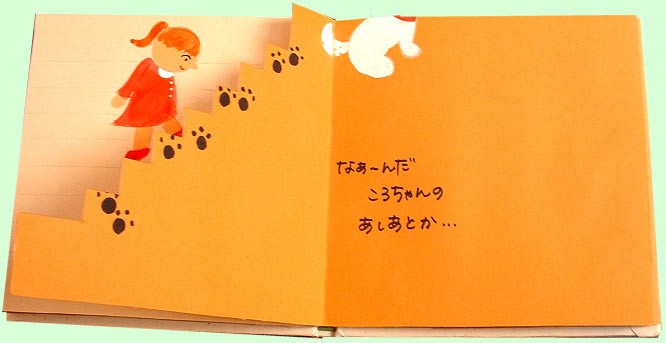 なぁ〜んだ
ころちゃんの
あしあとか…